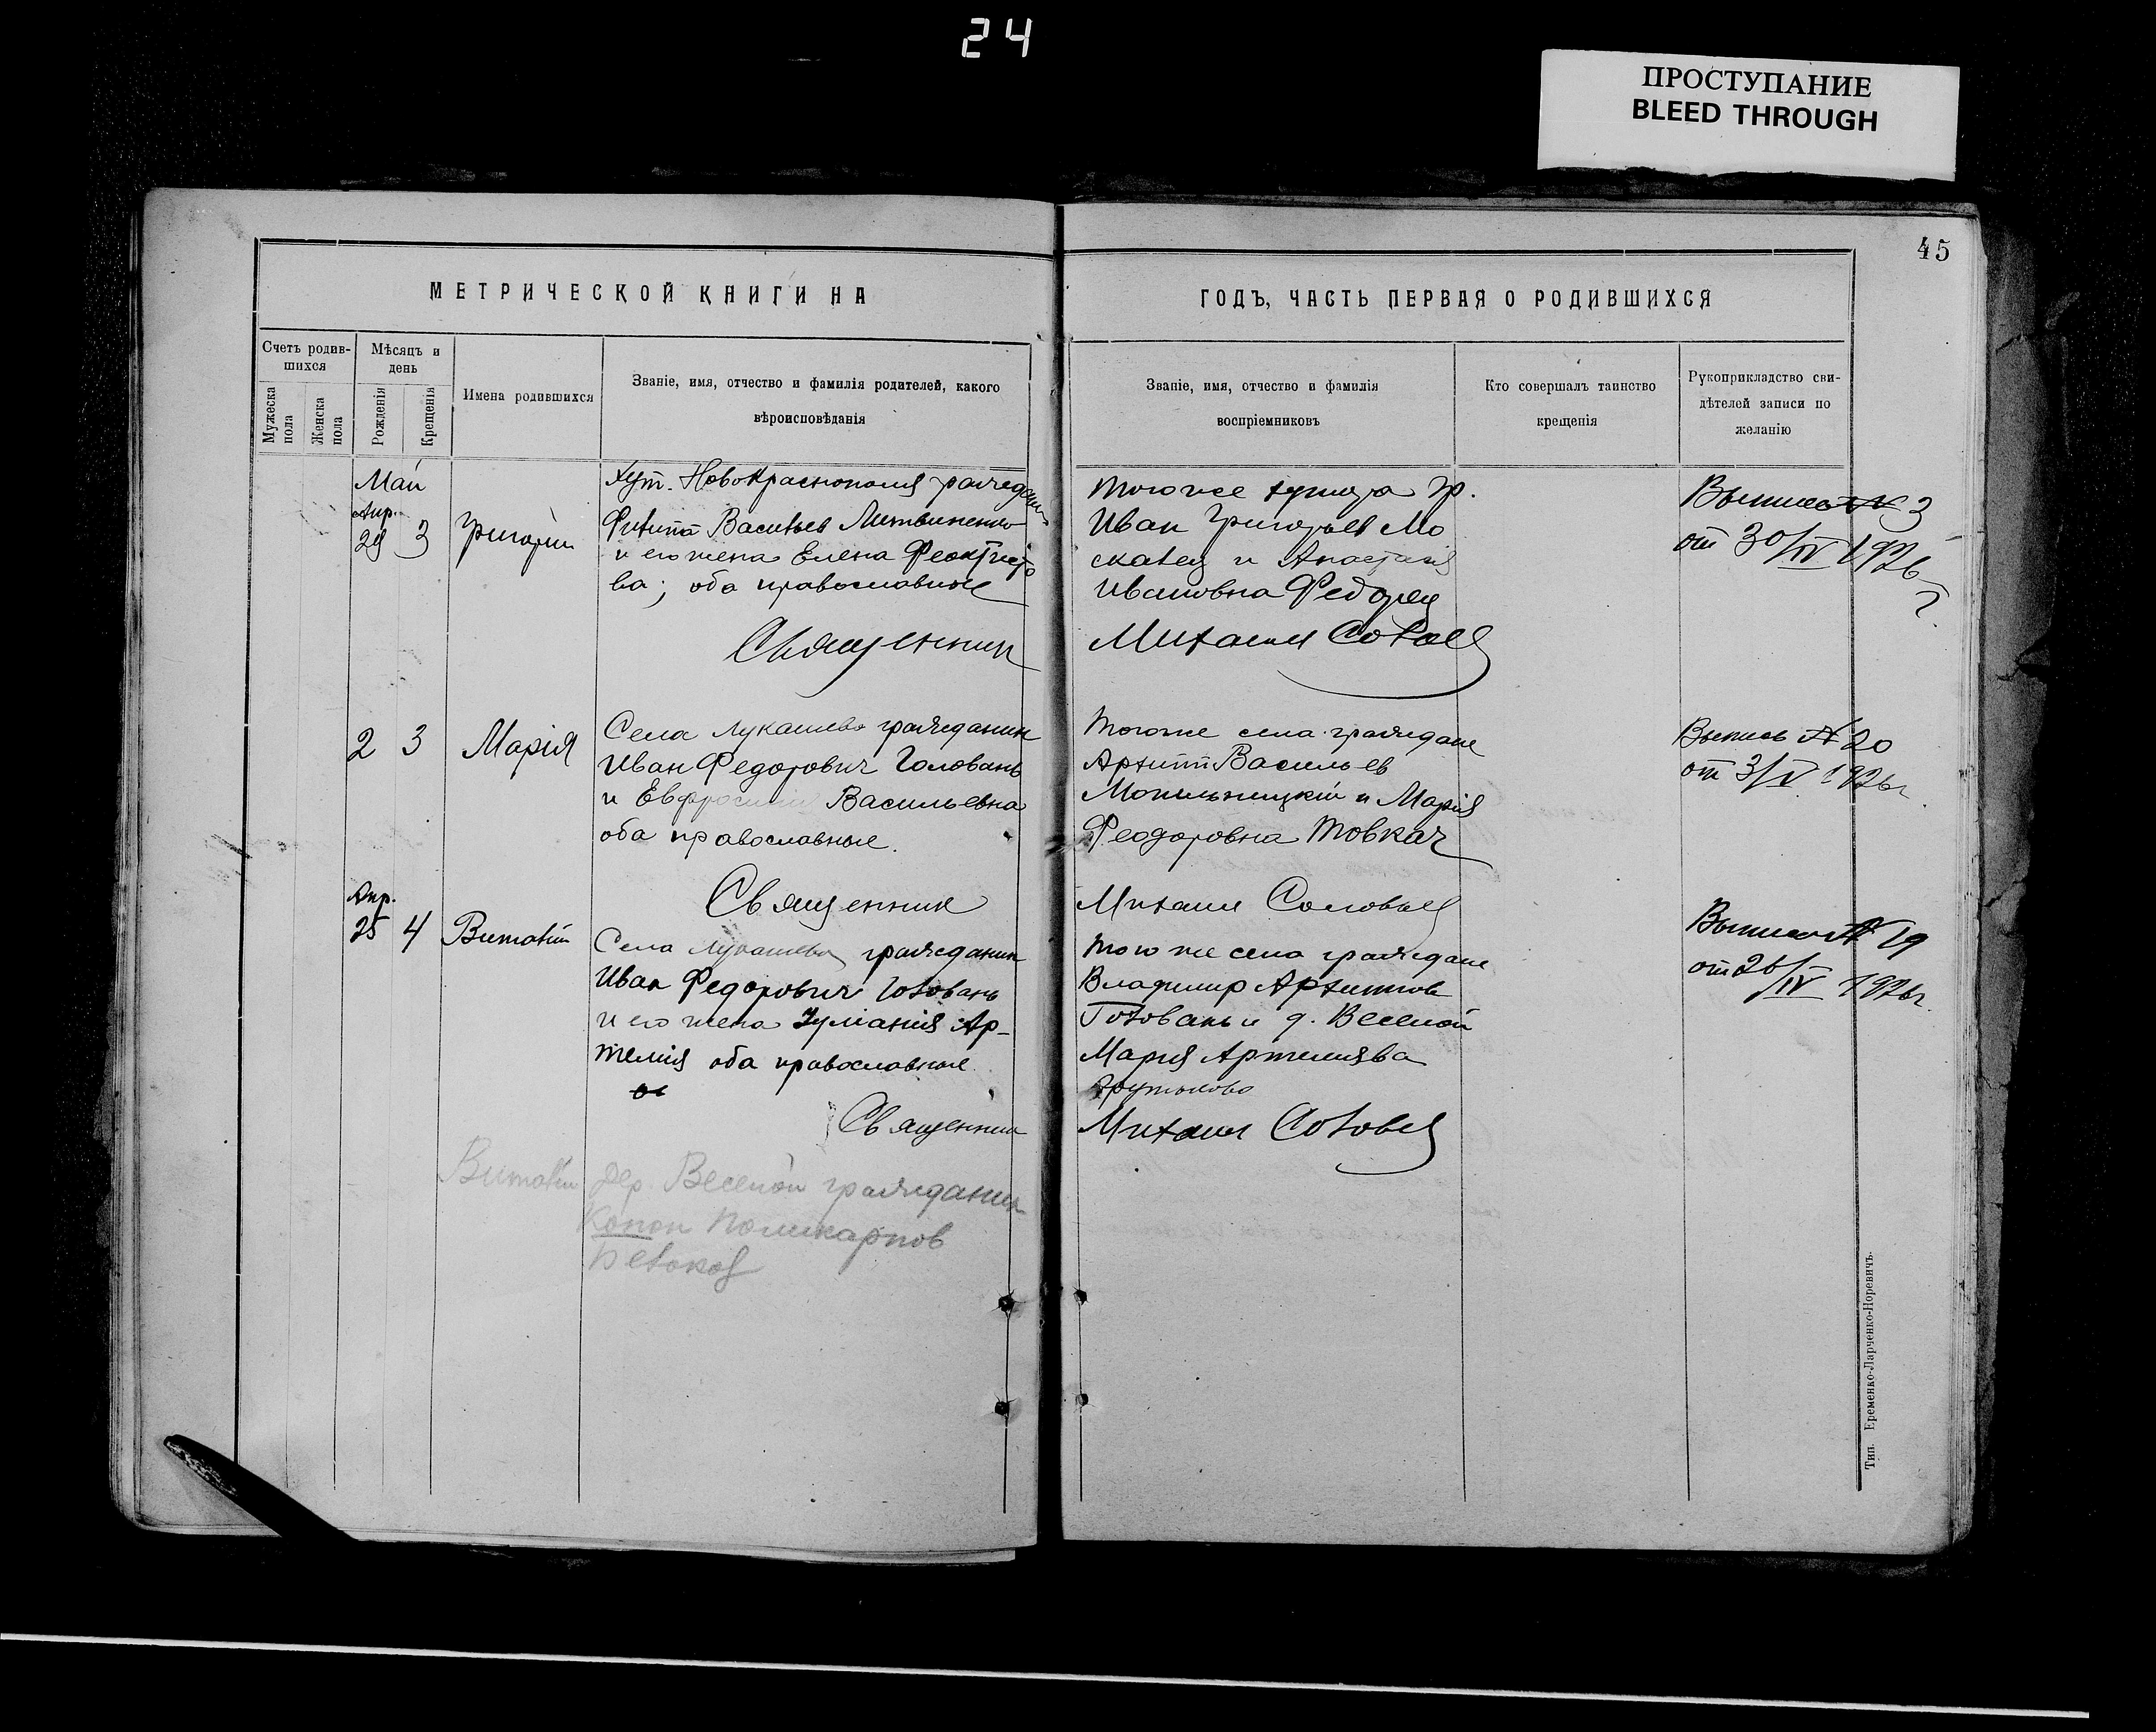 24
ПРОСТУПАНИЕ
BLEED THROUGH
45
МЕТРИЧЕСКОЙ КНИГИ НА
ГОДЪ, ЧАСТЬ ПЕРВАЯ О РОДИВШИХСЯ
Счетъ родив-
шихся
Мужеска
пола
Женска
пола
Мѣсяцъ и
день
Рожденія
Крещенія
Имена родившихся
Званіе, имя, отчество и фамилія родителей, какого
вѣроисповѣданія
Званіе, имя, отчество и фамилія
воспріемниковъ
Кто совершалъ таинство
крещенія
Рукоприкладство сви-
дѣтелей записи по
желанію
Май
Апр.
29 3 Григорій
Хут. Новокраснополя граждан.
Филипп Васильев Литвиненко
и его жена Елена Феоктисто
ва; оба православные
Священник
тогоже хутора гр.
Иван Григорьев Мо
скалец и Анастасія
Ивановна Федорец
Михаил Соловей
Выпись № 3
от 30/IV 1926
г.
2 3 Марія
Села Лукашево гражданин
Иван Федорович Головань
и Евфросинія Васильевна
оба православные.
Священник
тогоже села граждане
Архипп Васильев
и Марія
Феодоровна Товкач
Михаил Соловей
Выпись № 20
от 3/V 1926г.
Апр.
25 4 Виталій
Села Лукашево гражданин
Иван Федорович Головань
и его жена Іуліанія Ар-
темія оба православные.
Священник
того же села граждане
Владимир Архиппов
Головань и д. Веселой
Марія Артемиева
Михаил Соловей
Выпись № 19
от 26/IV 1926г.
Виталій дер. Веселой гражданин
Конон Поликарпов
Тип. Еременко-Ларченко-Норевичъ.